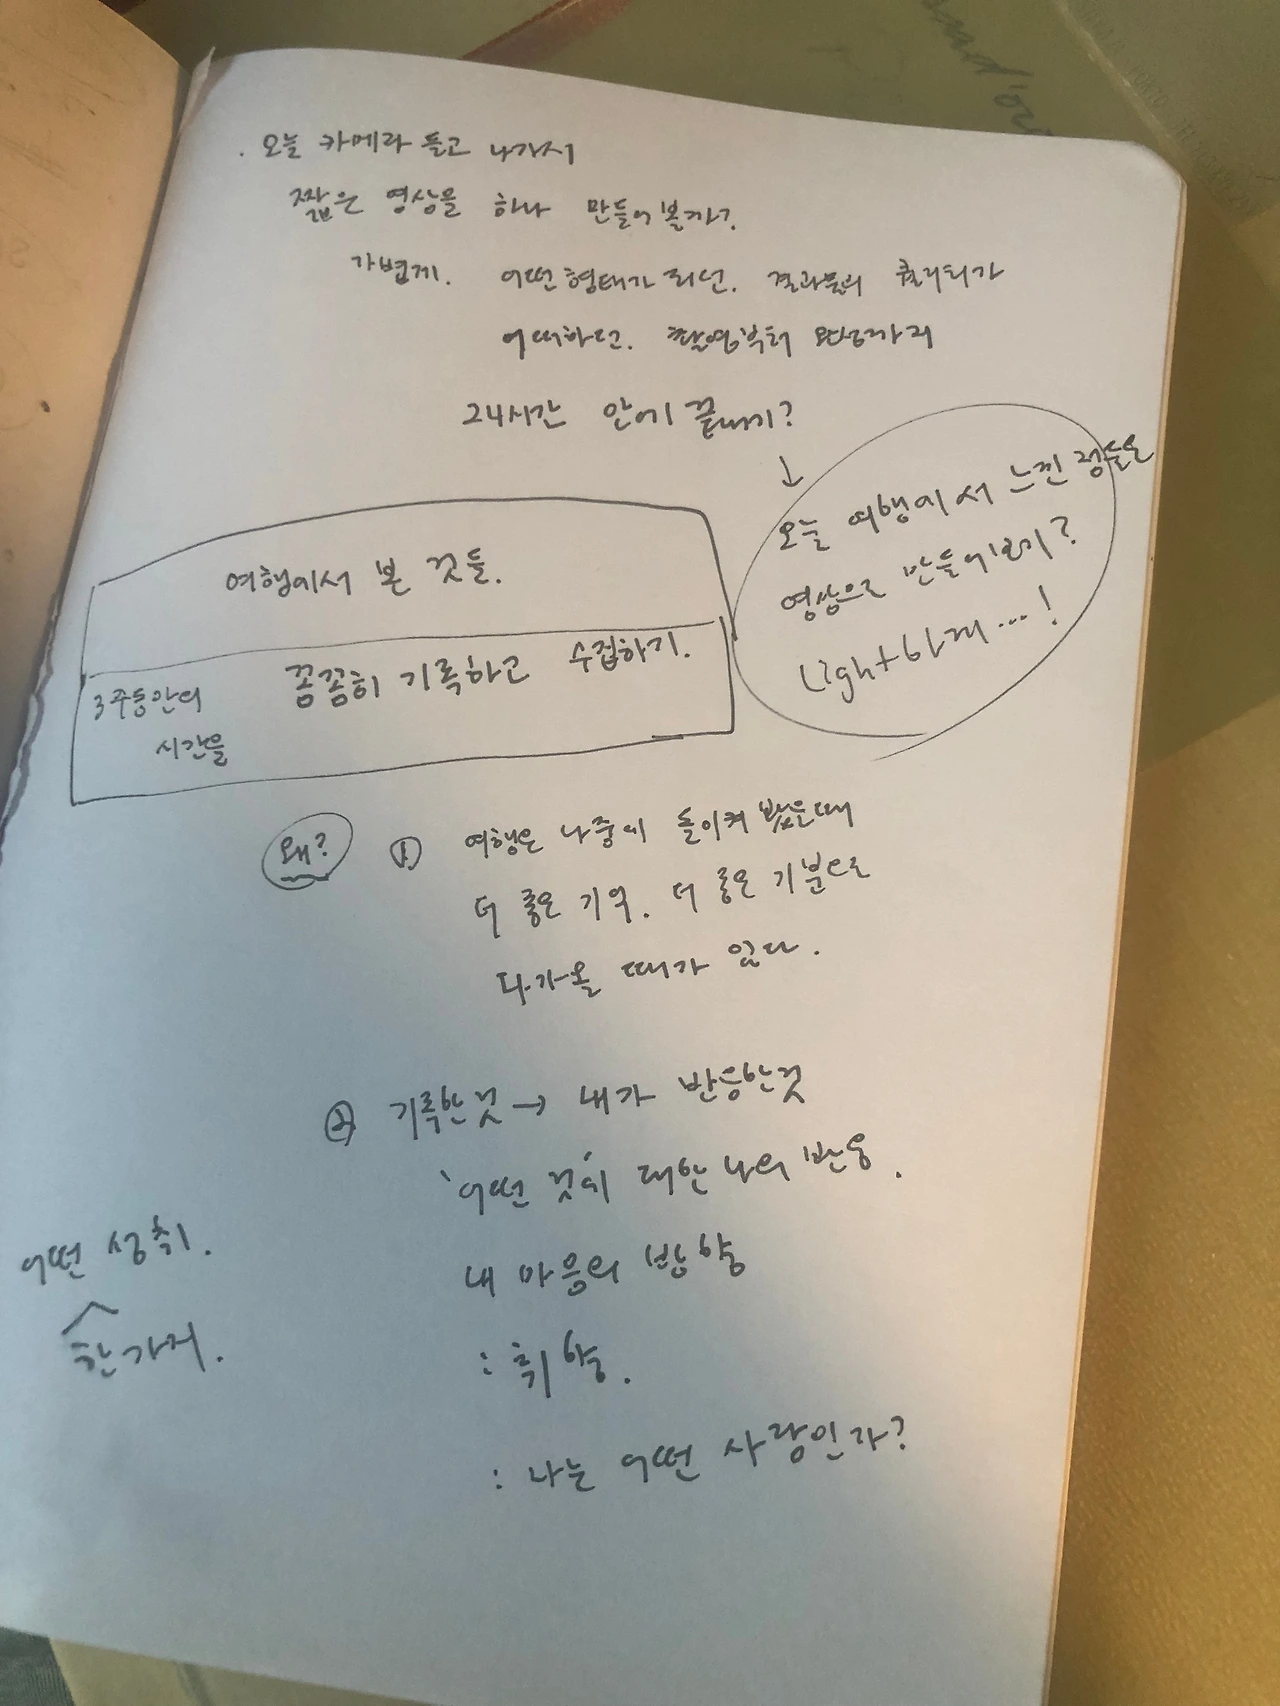 . 오늘 카메라 들고 나가서
짧은 영상을 하나 만들어볼까?
가볍게. 어떤 형태가 되던. 결과물의 퀄리티가
어떠하던. 촬영부터 완성까지
24시간 안에 끝내기?
↓
오늘 여행에서 느낀 점들을
영상으로 만들어보기?
Light하게...!
여행에서 본 것들.
3주동안의 꼼꼼히 기록하고 수집하기.
시간을
왜? ① 여행은 나중에 돌이켜 봤을때
더 좋은 기억. 더 좋은 기분으로
다가올 때가 있다.
② 기록한 것 → 내가 반응한 것
'어떤 것'에 대한 나의 반응.
내 마음의 방향
: 취향.
: 나는 어떤 사람인가?
어떤 성취.
한가지.